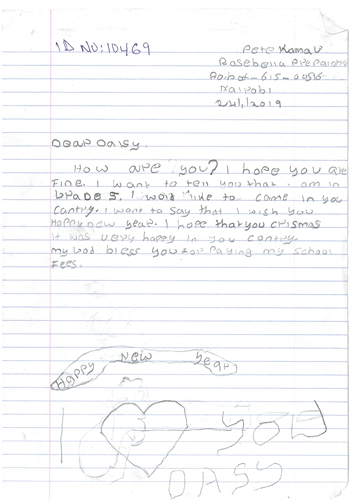 ID NO: 10469
Pete Kamau
Rosebella Preparatory
P.o.box - 615 - 00516
Nairobi
24/1/2019
Dear Daisy.
How are you? I hope you are
Fine. I want to tell you that. am in
brade 5. I woud like to come in you
cantry. I want to say that I wish you
Happy new year. I hope that you crismas
it was very happy in you cantry.
my bod bless you for paying my school
Fees.
Happy New Year
I you
DASY